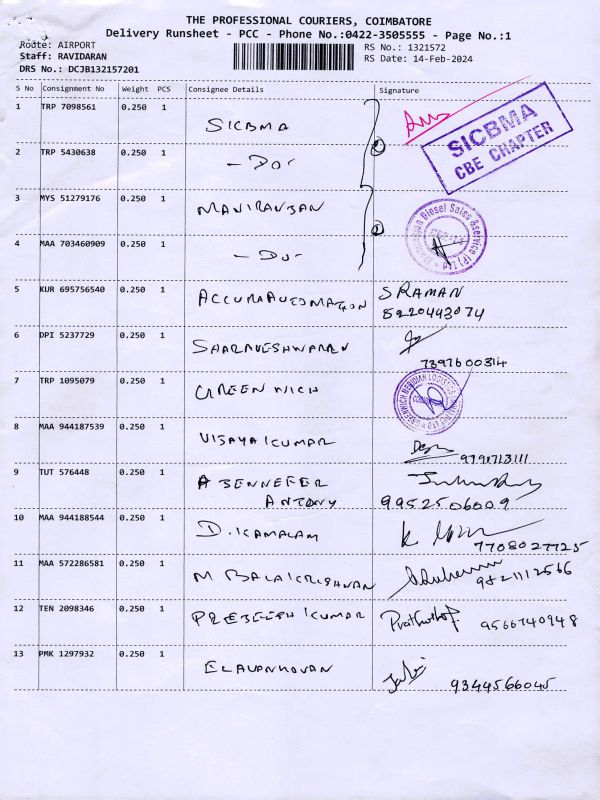 THE PROFESSIONAL COURIERS, COIMBATORE
Delivery Runsheet - PCC - Phone No.:0422-3505555 - Page No.:1
Route: AIRPORT RS No.: 1321572
Staff: RAVIDARAN RS Date: 14-Feb-2024
DRS No.: DCJB132157201
S No Consignment No Weight PCS Consignee Details Signature
1 TRP 7098561 0.250 1 SICBMA
SICBMA
CBE CHAPTER
2 TRP 5430638 0.250 1 - Do - 2
3 MYS 51279176 0.250 1 MANIRANJAN
4 MAA 703460909 0.250 1 - Do - 2
5 KUR 695756540 0.250 1 ACCURAAUTOMATION S RAMAN
8220443074
6 DPI 5237729 0.250 1 SHARAVESHWARAN
7397600314
7 TRP 1095079 0.250 1 GREENWICH
8 MAA 944187539 0.250 1 VIJAYAKUMAR
9791713111
9 TUT 576448 0.250 1 A JENNEFER
ANTONY 9952506009
10 MAA 944188544 0.250 1 D. KAMALAM
7708027725
11 MAA 572286581 0.250 1 M BALAKRISHNAN
9821112566
12 TEN 2098346 0.250 1 PREJEESH KUMAR 9566740948
13 PMK 1297932 0.250 1 ELAVANHOVAN
9344566045